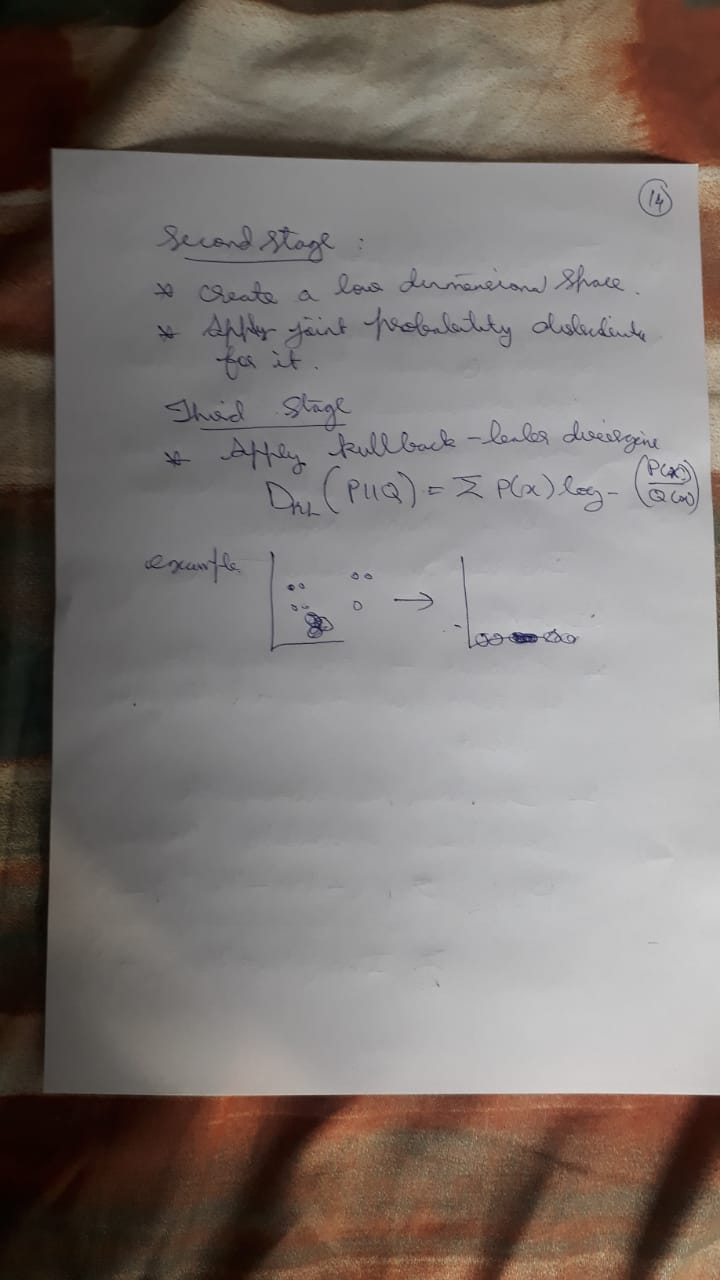 14
Second Stage :
* Create a low dimensional Space.
* Apply joint probability
for it.
Third Stage
* Apply kullback - divergine
D_KL (P||Q) = Σ P(x) log- (P(x)/Q(x))
example